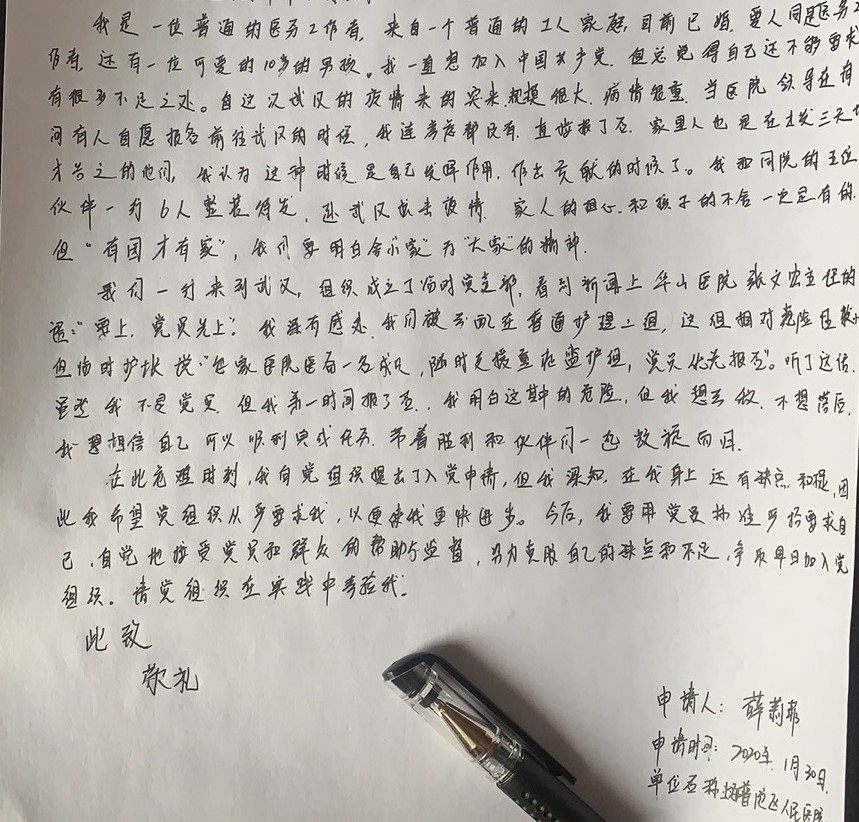 我是一位普通的医务工作者,来自一个普通的工人家庭,目前已婚,爱人同是医务工
作者,还有一位可爱的10岁的男孩。我一直想加入中国共产党,但总觉得自己还不够要求
有很多不足之处。自这次武汉的疫情来的突来规模很大,病情严重,当医院领导在有
问有人自愿报名前往武汉的时候,我连考虑都没有,直接报了名。家里人也是在出发三天
才告之的他们,我认为这种时候是自己发挥作用,作出贡献的时候了。我和同院的五位
伙伴一行6人整装待发,赴武汉抗击疫情。家人的担心和孩子的不舍一定是有的,
但“有国才有家”,我们要明白舍“小家”为“大家”的精神.
我们一行来到武汉,组织成立了临时党支部,看到新闻上华山医院张文宏主任的
话:“要上,党员先上”。我深有感处,我们被分配在普通护理二组,这组相对危险
但临时护士长说:“每家医院医后一名成员,随时支援重症监护组,党员优先报名”。听了这话,
虽然我不是党员,但我第一时间报了名。我明白这其中的危险,但我想去做,不想落后,
我要相信自己可以顺利完成任务,带着胜利和伙伴们一起凯旋而归.
在此危难时刻,我向党组织提出了入党申请,但我深知,在我身上还有缺点和
此我希望党组织从严要求我,以便使我更快进步。今后,我要用党员标准严格要求自
己,自觉地接受党员和群众的帮助与监督,努力克服自己的缺点和不足,争取早日加入党
组织。请党组织在实践中考验我!
此致
敬礼
申请人:薛莉
申请时间:2020年1月30日.
单位名称:上海普陀区人民医院